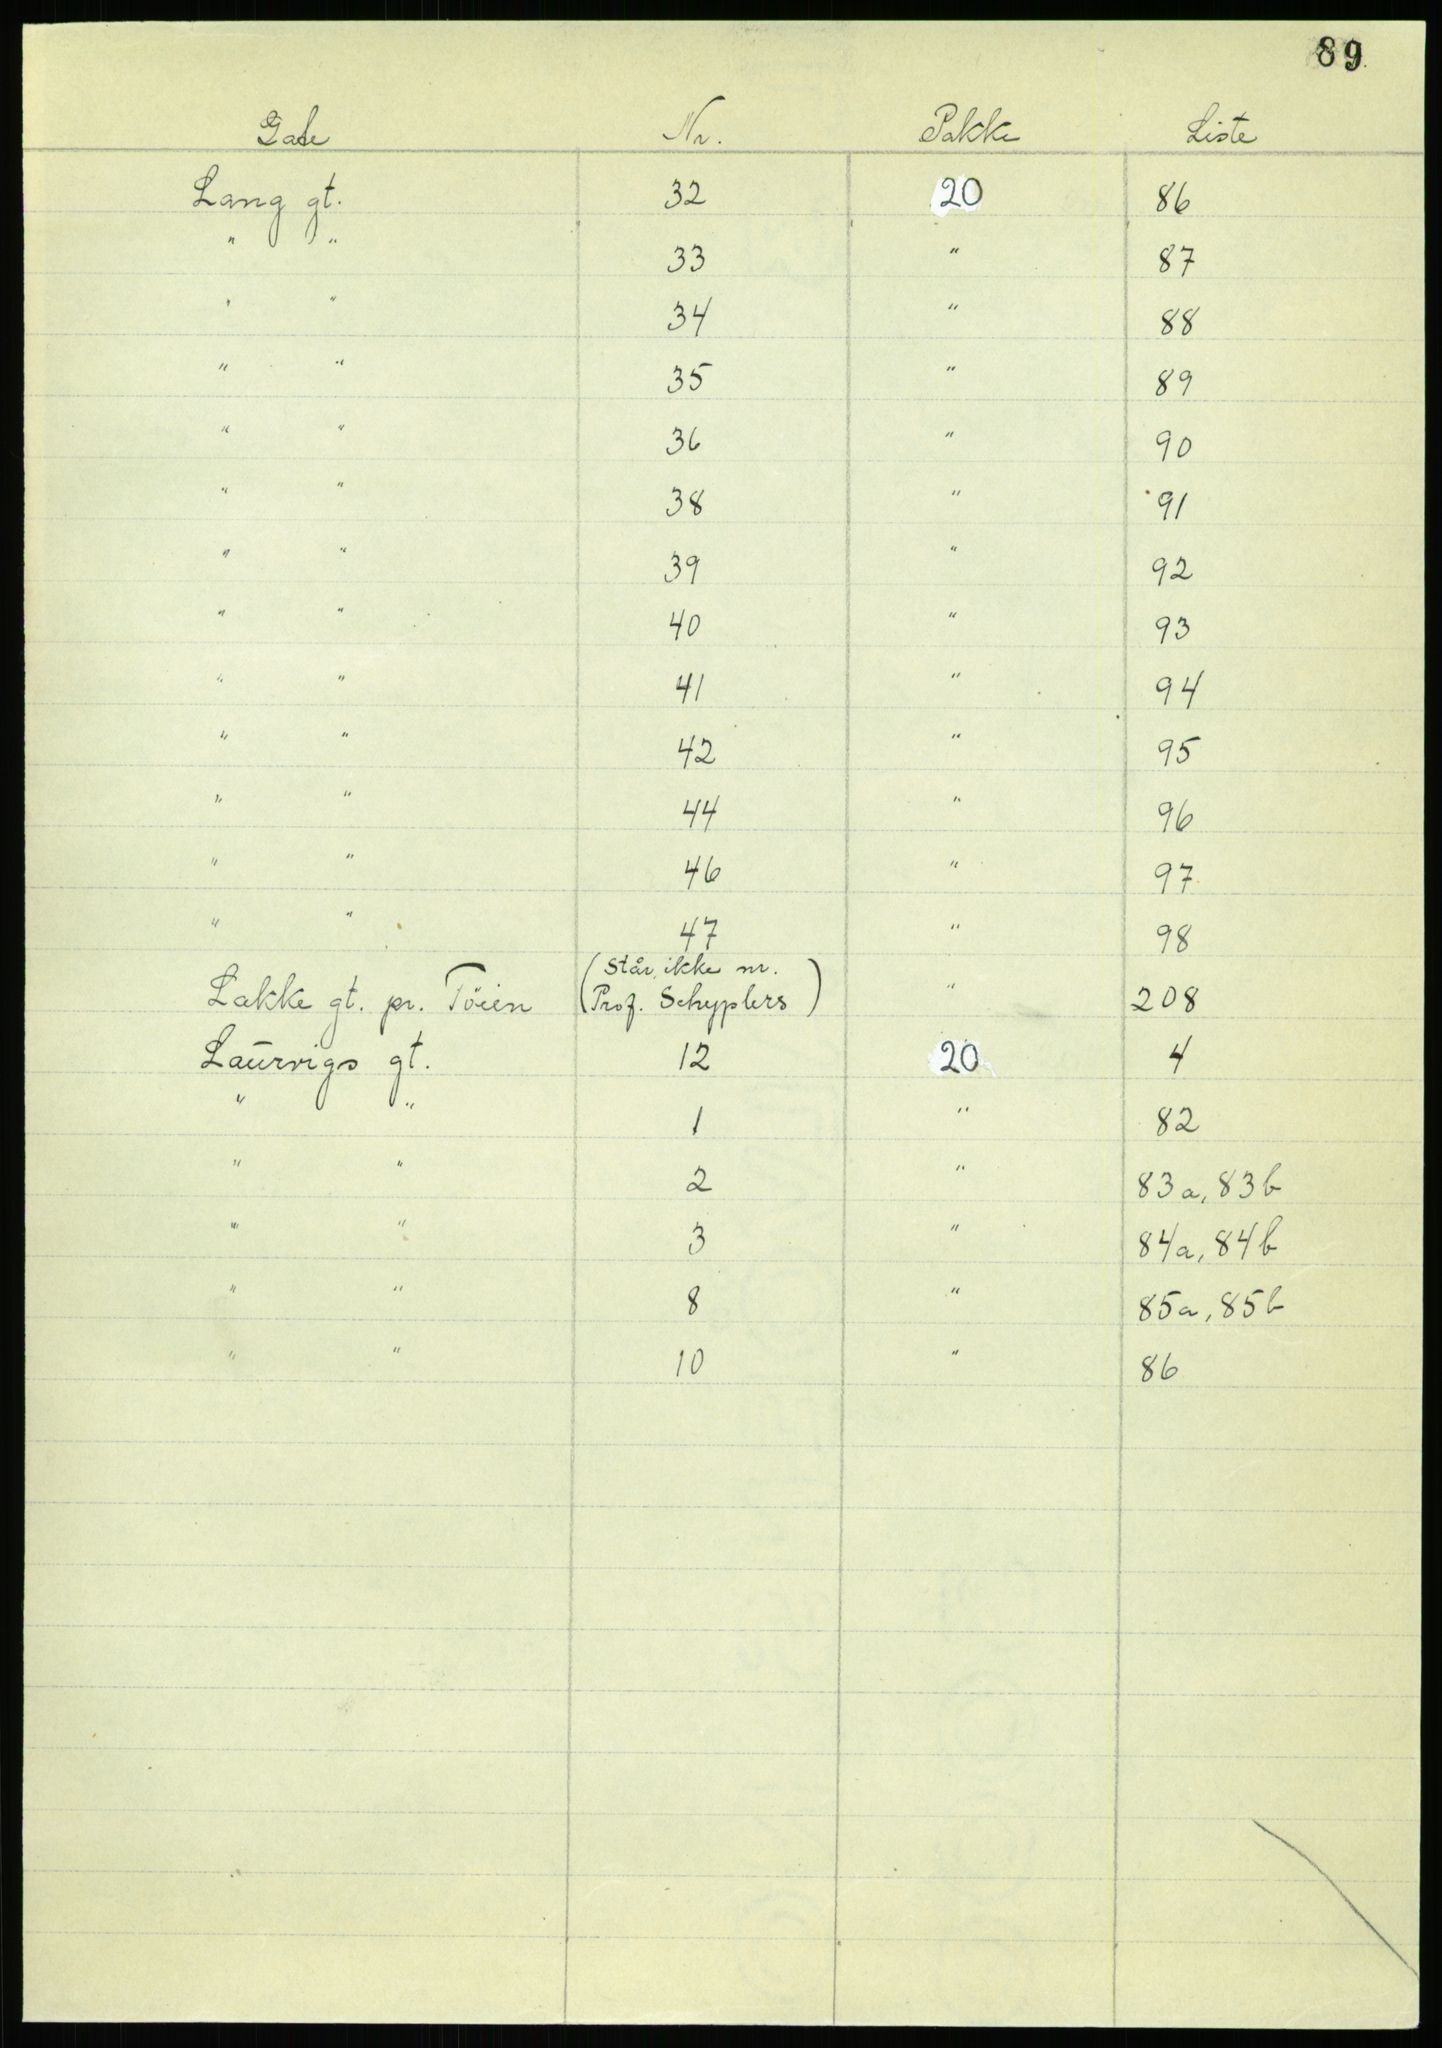 89
Gate Nr. Pakke Liste
Lang gt. 32 20 86
" " 33 " 87
" " 34 " 88
" " 35 " 89
" " 36 " 90
" " 38 " 91
" " 39 " 92
" " 40 " 93
" " 41 " 94
" " 42 " 95
" " 44 " 96
" " 46 " 97
" " 47 " 98
Lakke gt. pr. Töien (Står ikke nr. Prof. Schyplers) " 208
Laurvigs gt. 12 20 4
" " 1 " 82
" " 2 " 83a, 83b
" " 3 " 84a, 84b
" " 8 " 85a, 85b
" " 10 " 86